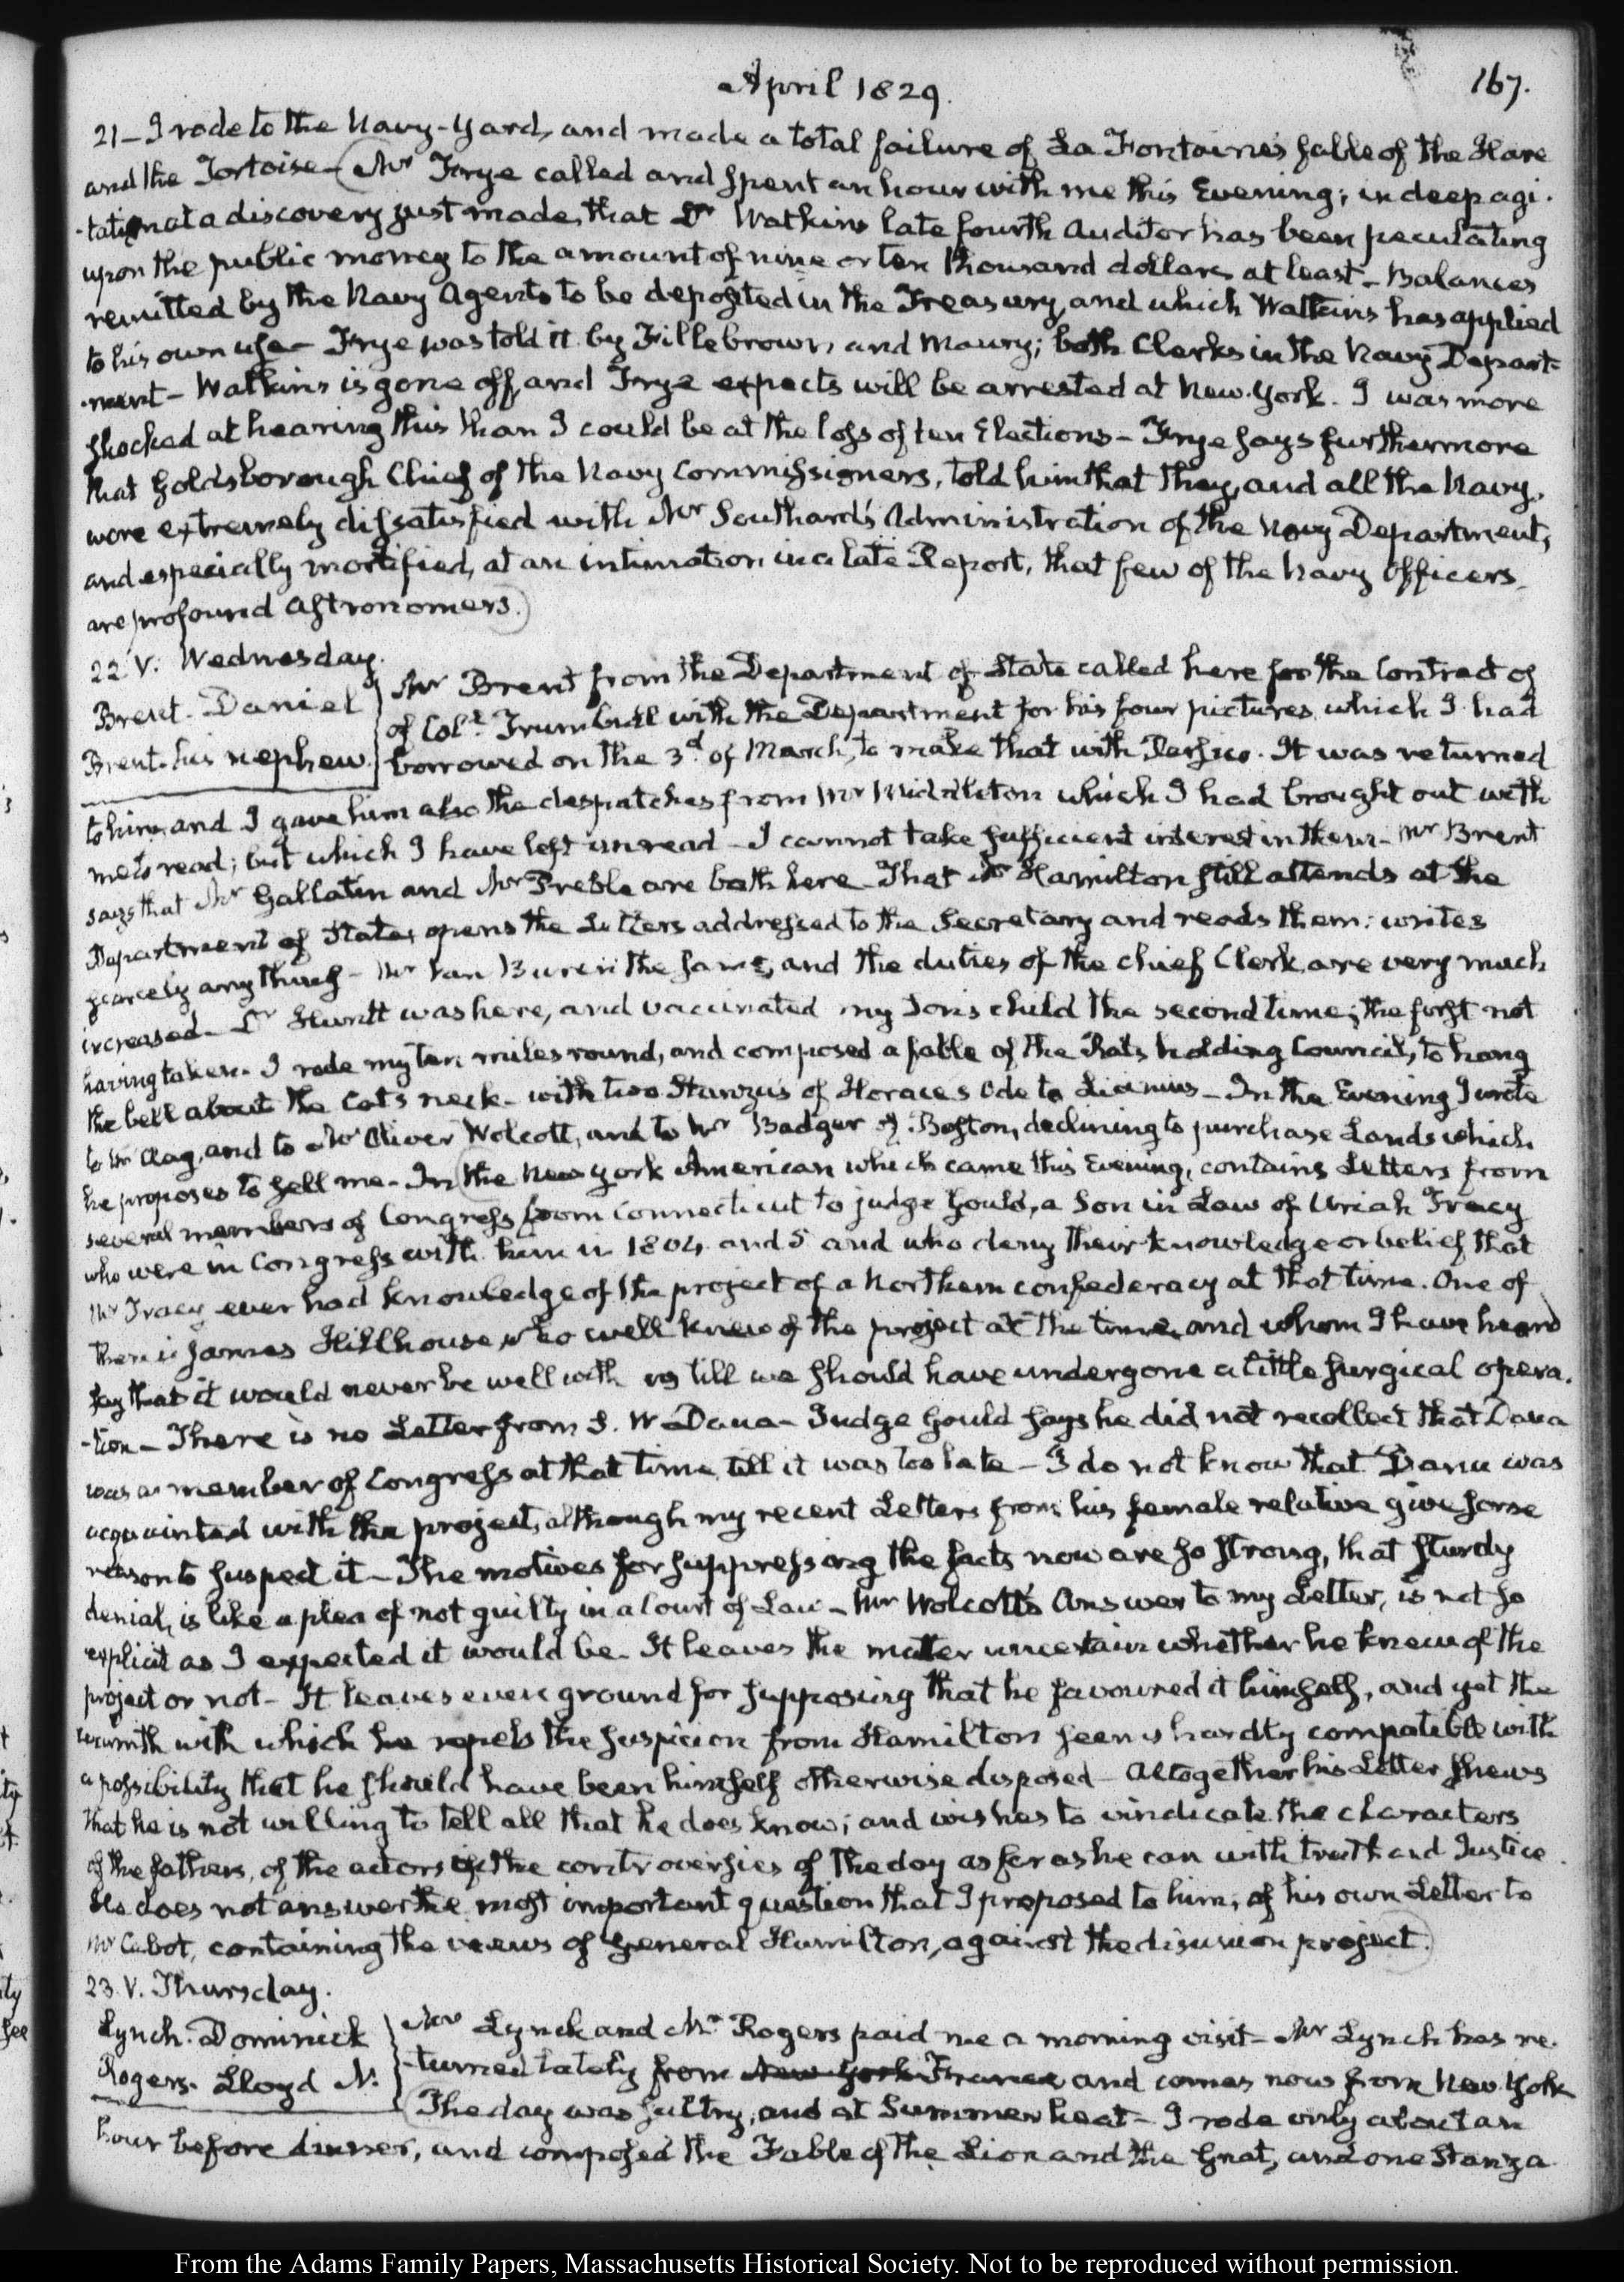 April 1829.
167.
21 – I rode to the Navy-Yard, and made a total failure of La Fontaine's fable of the Hare
and the Tortoise – (Mr Frye called and spent an hour with me this Evening; in deep agi-
-tation at a discovery just made, that Dr Watkins late fourth Auditor has been peculating
upon the public money to the amount of nine or ten thousand dollars at least – Balances
remitted by the Navy Agents to be deposited in the Treasury, and which Watkins has applied
to his own use – Frye was told it by Fillebrown, and Maury; both Clerks in the Navy Depart-
-ment – Watkins is gone off, and Frye expects will be arrested at New-York. I was more
shocked at hearing this than I could be at the loss of ten Elections – Frye says furthermore
that Goldsborough Chief of the Navy Commissioners, told him that they, and all the Navy,
were extremely dissatisfied with Mr Southard's Administration of the Navy Department,
and especially mortified, at an intimation in a late Report, that few of the Navy Officers
are profound Astronomers.)
22. V. Wednesday.
Brent. Daniel
Brent. his nephew.
Mr Brent from the Department of State called here for the Contract of
of Coll. Trumbull with the Department for his four pictures, which I had
borrowed on the 3d of March, to make that with Persico. It was returned
to him, and I gave him also the despatches from Mr Middleton which I had brought out with
me to read; but which I have left unread – I cannot take sufficient interest in them – Mr Brent
says that Mr Gallatin and Mr Preble are both here – That Mr Hamilton still attends at the
Department of State; opens the Letters addressed to the Secretary and reads them: writes
scarcely any thing – Mr Van Buren the same, and the duties of the chief Clerk are very much
increased – Dr Huntt was here, and vaccinated my Son's child the second time; the first not
having taken. I rode my ten miles round, and composed a fable of the Rats holding Council, to hang
the bell about the Cat's neck – with two Stanzas of Horace's Ode to Licinius – In the Evening I wrote
to Mr Clay, and to Mr Oliver Wolcott, and to Mr Badger of Boston, declining to purchase Lands which
he proposes to sell me – In (the New York American which came this Evening, contains Letters from
several members of Congress from Connecticut to judge Gould, a Son in Law of Uriah Tracy
who were in Congress with him in 1804 and 5 and who deny their knowledge or belief that
Mr Tracy ever had knowledge of the project of a Northern confederacy at that time. One of
them is James Hillhouse, who well knew of the project at the time, and whom I have heard
say that it would never be well with us till we should have undergone a little surgical opera-
-tion – There is no Letter from S. W. Dana – Judge Gould says he did not recollect that Dana
was a member of Congress at that time, till it was too late – I do not know that Dana was
acquainted with the project, although my recent Letters from his female relative give some
reason to suspect it – The motives for suppressing the facts now are so strong, that sturdy
denial, is like a plea of not guilty in a Court of Law – Mr Wolcott's Answer to my Letter, is not so
explicit as I expected it would be. It leaves the matter uncertain whether he knew of the
project or not – It leaves even ground for supposing that he favoured it himself, and yet the
warmth with which he repels the suspicion from Hamilton seems hardly compatible with
a possibility that he should have been himself otherwise disposed – Altogether his Letter shews
that he is not willing to tell all that he does know; and wishes to vindicate the characters
of the fathers, of the actors of the controversies of the day as far as he can with truth and Justice.
He does not answer the most important question that I proposed to him, of his own Letter to
Mr Cabot, containing the views of General Hamilton, against the disunion project.)
23. V. Thursday.
Lynch. Dominick
Rogers. Lloyd N.
Mr Lynch and Mr Rogers paid me a morning visit – Mr Lynch has re-
-turned lately from New York France and comes now from New York
(The day was sultry, and at Summer heat – I rode only about an
hour before dinner, and composed the Fable of the Lion and the Gnat, and one Stanza
From the Adams Family Papers, Massachusetts Historical Society. Not to be reproduced without permission.